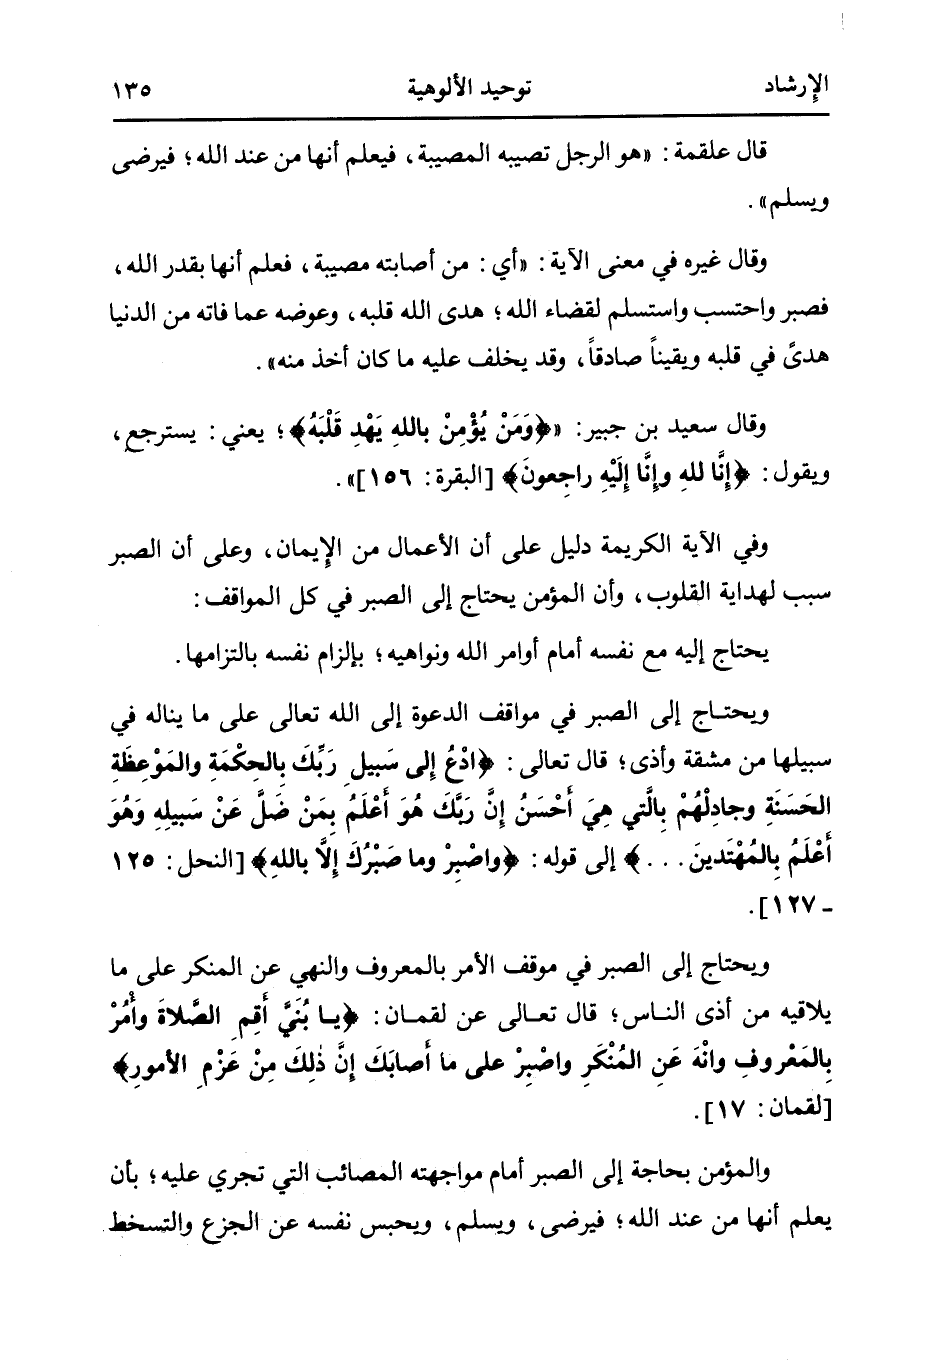 الإرشاد توحيد الألوهية ١٣٥
قال علقمة: «هو الرجل تصيبه المصيبة، فيعلم أنها من عند الله؛ فيرضى
ويسلم».
وقال غيره في معنى الآية: «أي: من أصابته مصيبة، فعلم أنها بقدر الله،
فصبر واحتسب واستسلم لقضاء الله؛ هدى الله قلبه، وعوضه عما فاته من الدنيا
هدىً في قلبه ويقيناً صادقاً، وقد يخلف عليه ما كان أخذ منه».
وقال سعيد بن جبير: «﴿وَمَنْ يُؤْمِنْ بالله يَهْدِ قَلْبَهُ﴾؛ يعني: يسترجع،
ويقول: ﴿إنَّا للهِ وإنَّا إلَيْهِ راجِعونَ﴾ [البقرة: ١٥٦]».
وفي الآية الكريمة دليل على أن الأعمال من الإيمان، وعلى أن الصبر
سبب لهداية القلوب، وأن المؤمن يحتاج إلى الصبر في كل المواقف:
يحتاج إليه مع نفسه أمام أوامر الله ونواهيه؛ بإلزام نفسه بالتزامها.
ويحتاج إلى الصبر في مواقف الدعوة إلى الله تعالى على ما يناله في
سبيلها من مشقة وأذى؛ قال تعالى: ﴿ادْعُ إلى سَبيلِ رَبِّكَ بِالحِكْمَةِ والمَوْعِظَةِ
الحَسَنَةِ وجادِلْهُمْ بِالَّتي هِيَ أَحْسَنُ إنَّ رَبَّكَ هُوَ أَعْلَمُ بِمَنْ ضَلَّ عَنْ سَبيلِهِ وَهُوَ
أَعْلَمُ بِالمُهْتَدينَ...﴾ إلى قوله: ﴿واصْبِرْ وما صَبْرُكَ إلَّا باللهِ﴾ [النحل: ١٢٥
ـ ١٢٧].
ويحتاج إلى الصبر في موقف الأمر بالمعروف والنهي عن المنكر على ما
يلاقيه من أذى الناس؛ قال تعالى عن لقمان: ﴿يا بُنَيَّ أَقِمِ الصَّلاةَ وأْمُرْ
بِالمَعْروفِ وانْهَ عَنِ المُنْكَرِ واصْبِرْ على ما أَصابَكَ إنَّ ذٰلِكَ مِنْ عَزْمِ الأمورِ﴾
[لقمان: ١٧].
والمؤمن بحاجة إلى الصبر أمام مواجهته المصائب التي تجري عليه؛ بأن
يعلم أنها من عند الله؛ فيرضى، ويسلم، ويحبس نفسه عن الجزع والتسخط